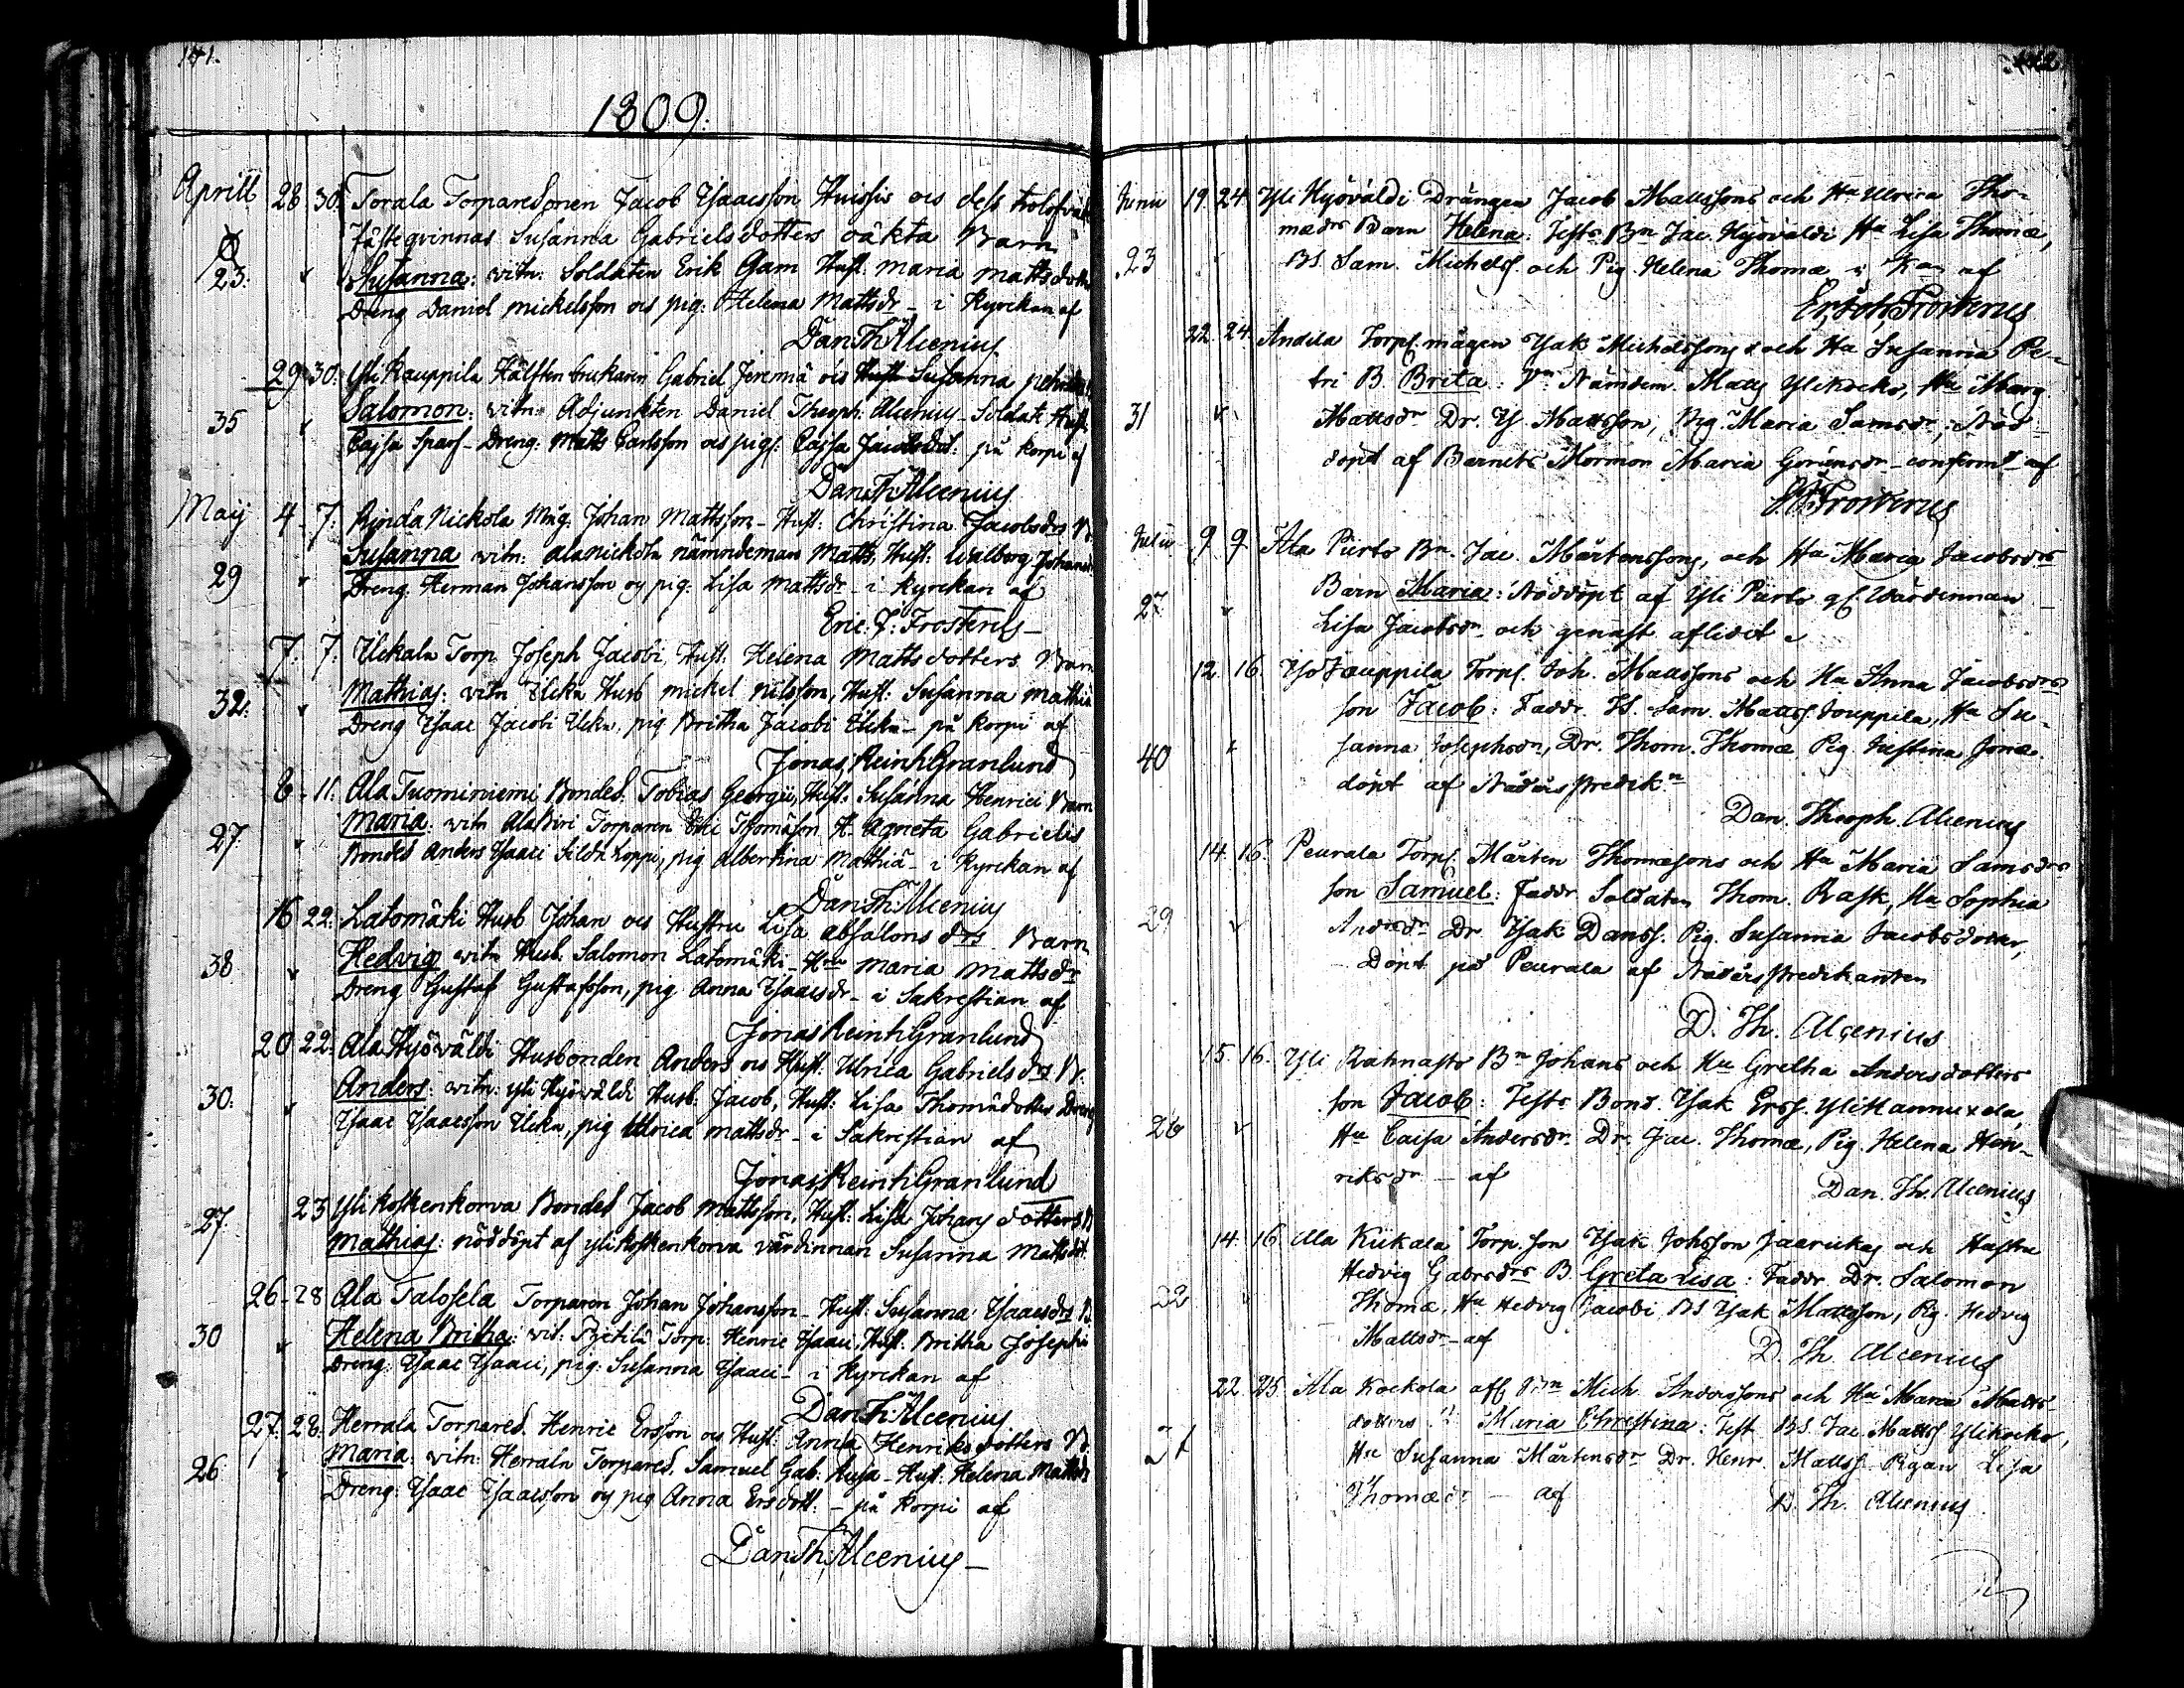 141.
142
1809.
Aprill 28 30. Torala Torparesonen Jacob Isaacsson Huissis och dess
Fästeqvinnas Susanna Gabrielsdotters oäkta Barn
23. Susanna: witn: Soldaten Erik Gam Hust: Maria Mattsdotter
Dreng Daniel Mickelsson och pig: Helena Mattsdr – i Kyrckan af
Dan: Th: Alcenius
29 30. Yli Kauppila Hälften brukaren Gabriel Jeremiä och Hust Susanna
35 Salomon: witn: Adjunkten Daniel Theoph: Alcenius, Soldats Hust.
Cajsa Sparf – Dreng: Matts Carlsson och pig: Cajsa Jacobsdot: på Korpi af
Dan: Th: Alcenius
Maij 4 – 7: Rinda Nickola Måg: Johan Mattsson – Hust: Christina Jacobsdrs B
29 Susanna witn: Alanickola nämndeman Matts, Hust: Walborg
Dreng Herman Johansson och pig: Lisa Mattsdr – i Kyrckan af
Eric J: Frosterus –
7. 7: Ulckala Torp Joseph Jacobi, Hust: Helena Mattsdotters Barn
32. Mathias: witn Husb mickel nilsson, Hust: Susanna
Dreng Isaac Jacobi, pig Britha Jacobi – på Korpi af
Jonas Reinh Granlund
8 – 11: Ala Tuominiemi Bonded: Tobias Georgii, Hust: Susanna Henrici Barn
27. Maria: witn AlaPiri Torparen Eric Thomasson H. Agneta Gabrielis
Bonded Anders Isaaci, pig Albertina Mathiä – i Kyrckan af
Dan: Th: Alcenius
16 22: Latomäki Husb Johan och Hustru Lisa absalons drs Barn
38. Hedvig witn Husb. Salomon Latomäki – Hru Maria Mattsdr
Dreng Gustaf Gustafsson, pig Anna Isaacsdr – i Sakrestian af
Jonas Reinh Granlund
20 22: Ala Hyöväldi Husbonden Anders och Hust: Ulrica Gabrielsdrs B:
30: Anders: witn: yli Hyöväldi Husb: Jacob, Hust: Lisa Thomädotter Dreng
Isaac Isaacsson, pig Ulrica Mattsdr – i Sakrestian af
Jonas Reinh Granlund
23 Yli Koskenkorva Bonded Jacob Mattsson, Hust: Lisa Johans dotters B
27. Mathias: nöddöpt af yli koskenkorva värdinnan Susanna Mattsdot.
26 – 28 Ala Talosela Torparen Johan Johansson – Hust: Susanna Isaacsdrs B
30 Helena Britha: wit: Torp: Henric Isaaci, Hust. Britha Josephi
Dreng: Isaac Isaaci, pig: Susanna Isaaci – i Kyrckan af
Dan: Th: Alcenius
27. 28. Herrala Torpared. Henric Ersson och Hust: Anna Henriksdotters B
26 Maria. witn: Herrala Torpared. Samuel Gab: – Hust. Helena Mattsdr
Dreng: Isaac Isaacsson och pig Anna Ersdott: – på Korpi af
Dan: Th: Alcenius –
Juniu 19. 24. Yli Hyöväldi Drängen Jacob Mattssons och Hu Ulrica Tho-
mædrs Barn Helena. Test: Bn Jac. Hyöväldi Hu Lisa Thomæ,
23 BS. Sam. Michelss. och Pig. Helena Thomæ i af
Er. Joh. Frosterus
22. 24. Andila Torps. mågen Isak Michelssons och Hu Susanna Pe-
tri B. Brita: Nämdem. Matts Ylikocko, Hu Marg.
31 Mattsdr Dr. Is. Mattsson, Pig. Maria Samsdr, Nöd
döpt af Barnets Mormor Maria Göransdr – confirmt af
Frosterus
Juliu 9 9. Ala Piirto Bn. Jac. Mårtenssons, och Hu Maria Jacobsdrs
Barn Maria: Nöddöpt af Yli Piirto Wärdinnan –
27 Lisa Jacobsdr och genast aflidet
12. 16. Iso Jauppila Torps. Joh. Mattssons och Hu Anna Jacobsdrs
son Jacob: Faddr. Sam. Mattss. Jouppila, Hu Su-
40 sanna Josephsdr, Dr. Thom. Thomæ Pig. Justina Jonæ.
döpt af Nådårspredikn
Dan. Theoph. Alcenius
14. 16. Peurala Torps. Mårten Thomæsons och Hu Maria Samsdrs
son Samuel: Faddr Soldaten Thom. Rask, Hu Sophia
29 Andrsdr Dr. Isak Danss. Pig. Susanna Jacobsdotter,
Döpt på Peurala af Nådårspredikanten
D. Th. Alcenius
15. 16. Yli Rahnasto Bn Johans och Hu Gretha Andersdotters
son Jacob: Test: Bond. Isak Erss. YliHannuxela,
26 Hu Caisa Andersdr. Dr. Jac. Thomæ, Pig. Helena Hen-
riksdr – af
Dan. Th. Alcenius
14. 16. Ala Kiikala Torp. son Isak Johsson och Hustru
Hedvig Gabrsdrs B. Greta Lisa: Faddr. Dr. Salomon
22 Thomæ, Hu Hedvig Jacobi BS Isak Mattsson, Pig. Hedvig
Mattsdr – af
D. Th. Alcenius
22. 25. Ala Kockola Bn Mich. Anderssons och Hu Maria Matts-
dotters Maria Christina: Test BS. Jac. Mattss Ylikocko,
27 Hu Susanna Mårtensdr Dr. Henr. Mattss. Pigan Lisa
Thomædr – af D. Th. Alcenius